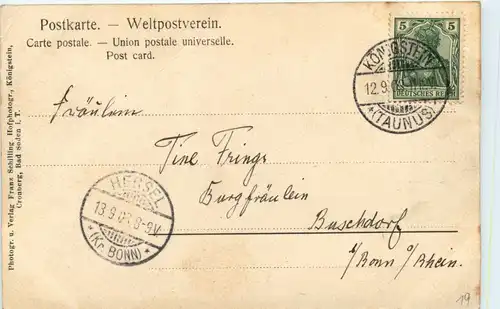 Postkarte. — Weltpostverein.
Carte postale. — Union postale universelle.
Post card.
5 5
DEUTSCHES REICH
KÖNIGSTEIN
12.9.
*(TAUNUS)*
Fräulein
Tine Frings
Burgfräulein
Buschdorf
b/Bonn a/Rhein.
HERSEL
13.9.03.8-9V
*(Kr. BONN)*
Photogr. u. Verlag Franz Schilling Hofphotogr., Königstein,
Cronberg, Bad Soden i. T.
19